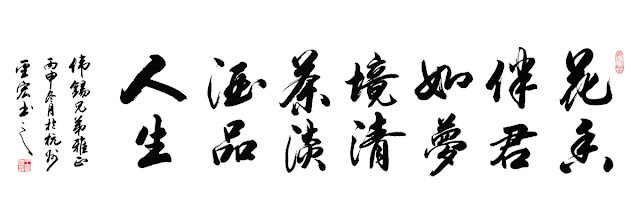 花香
伴君
如夢
境清
茶淡
酒品
人生
伟錫兄弟雅正
丙申冬月於杭州
宏书之